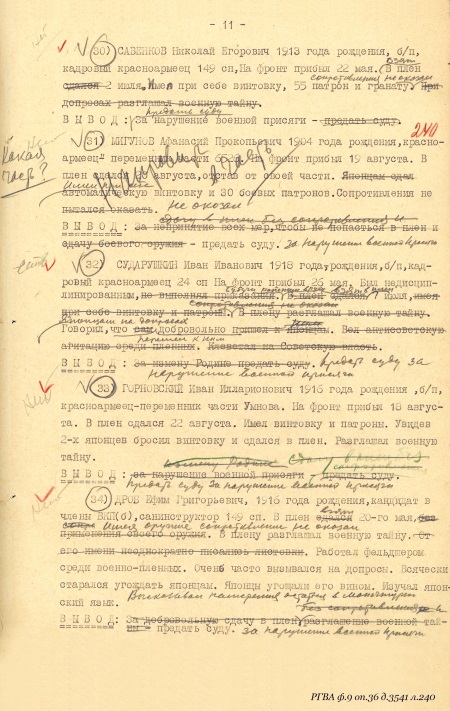 - 11 -
30) САВЕНКОВ Николай Егорович 1913 года рождения, б/п,
кадровый красноармеец 149 сп, На фронт прибыл 22 мая. В плен
взят
сопротивления не оказал
сдался 2 июля. Имел при себе винтовку, 55 патрон и гранату. При
допросах разглашал военную тайну.
предать суду
В Ы В О Д : За нарушение военной присяги - предать суду.
240
31) МИГУНОВ Афанасий Прокопьевич 1904 года рождения, красно-
армеец переменник
На фронт прибыл 19 августа. В
Какой
часв?
плен
августа, отстав от своей части. Японцам сдал
автоматическую винтовку и 30 боевых патронов. Сопротивления не
пытался оказать.
не оказал
сдачу в плен без сопротивления и
В Ы В О Д : За непринятие всех мер, чтобы не попасться в плен и
сдачу боевого оружия - предать суду. За нарушение военной присяги
32) СУДАРУШКИН Иван Иванович 1918 года рождения, б/п, кад-
ровый красноармеец 24 сп На фронт прибыл 26 мая. Был недисцип-
линированным, не выполнял приказаний. В плен сдался
июля, имея
сопротивления не оказал
при себе винтовку и патроны. В плену разглашал военную тайну.
Говорил, что сам добровольно пришел к японцам. Вел антисоветскую
агитацию среди пленных. Клеветал на Советскую власть.
В Ы В О Д : За измену Родине предать суду. предать суду за
нарушение военной присяги
33) ГОРНОВСКИЙ Иван Илларионович 1916 года рождения, б/п,
красноармеец-переменник части Умнова. На фронт прибыл 18 авгус-
та. В плен сдался 22 августа. Имел винтовку и патроны. Увидев
2-х японцев бросил винтовку и сдался в плен. Разглашал военную
тайну.
измену Родине
сдачу в плен без
сопротивления
В Ы В О Д : за нарушение военной присяги - предать суду.
предать суду за нарушение военной присяги
34) ДРОБ Ефим Григорьевич, 1916 года рождения, кандидат в
члены ВКП(б), санинструктор 149 сп. В плен сдался 20-го мая, без
взят
Имея оружие сопротивление не оказал
применения своего оружия. В плену разглашал военную тайну. От
его имени неоднократно писались листовки. Работал фельдшером
среди военно-пленных. Очень часто вызывался на допросы. Всячески
старался угождать японцам. Японцы угощали его вином. Изучал япон-
ский язык.
Высказывал намерения остаться в Манчжурии
без сопротивления и
В Ы В О Д : За добровольную сдачу в плен, разглашение военной тай-
ны - предать суду. за нарушение военной присяги
РГВА ф.9 оп.36 д.3541 л.240